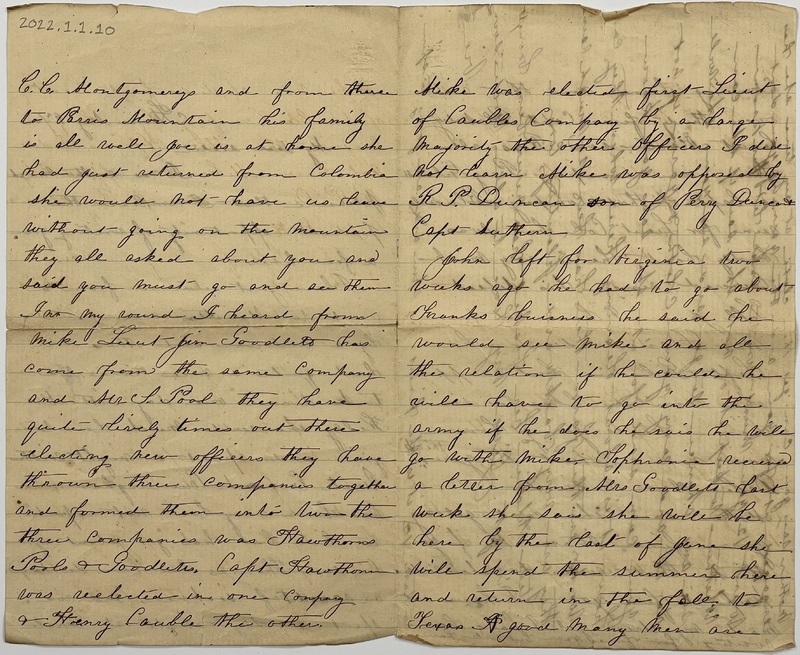 2022.1.1.10
C.C. Montgomerys and from there
to Paris Mountain his family
is all well Joe is at home she
had just returned from Colombia
she would not have us leave
without going on the mountain
they all asked about you and
said you must go and see them
In my round I heard from
Mike Lieut Jim Goodlett has
come from the same Company
and Mr S Pool they have
quite lively times out there
electing new officers they have
thrown three companies together
and formed them into two the
three companies was Hawthorns
Pools & Goodletts. Capt Hawthorn
was reelected in one Compay
& Henry Cauble the other.
Mike was elected first Lieut
of Caubles Company by a large
Majority the other officers I did
not learn Mike was opposed by
R P Duncan son of Perry Duncan &
Capt Suthern
John left for Virginia two
weeks ago he had to go about
Franks buisness he said he
would see Mike and all
the relation if he could, he
will have to go into the
army if he does he sais he will
go with Mike. Sophronia received
a letter from Mrs Goodlett last
week she sais she will be
here by the last of June she
will spend the summer there
and return in the fall, to
Texas A good many men are